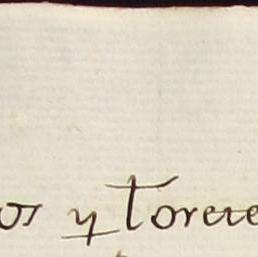 os y torere